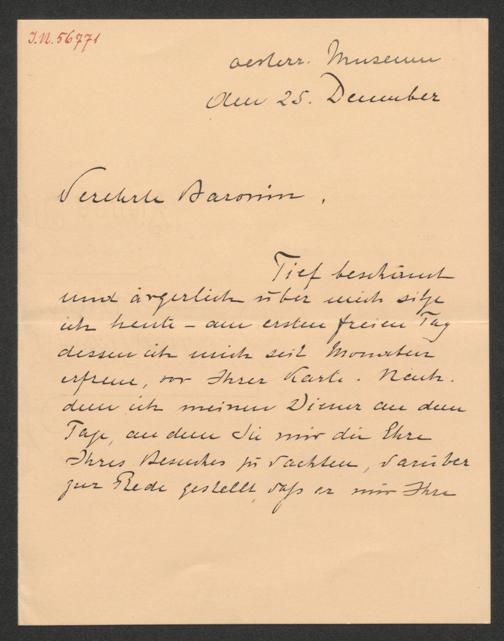 I.N. 56771
oesterr. Museum
den 25. Dezember
Verehrte Baronin,
Tief beschämt
und ärgerlich über mich sitze
ich heute – am ersten freien Tag
dessen ich mich seit Monaten
erfreue, vor Ihrer Karte. Nach-
dem ich meinen Diener an dem
Tage, an dem Sie mir die Ehre
Ihres Besuches zu dachten, darüber
zur Rede gestellt, daß er mir Ihre